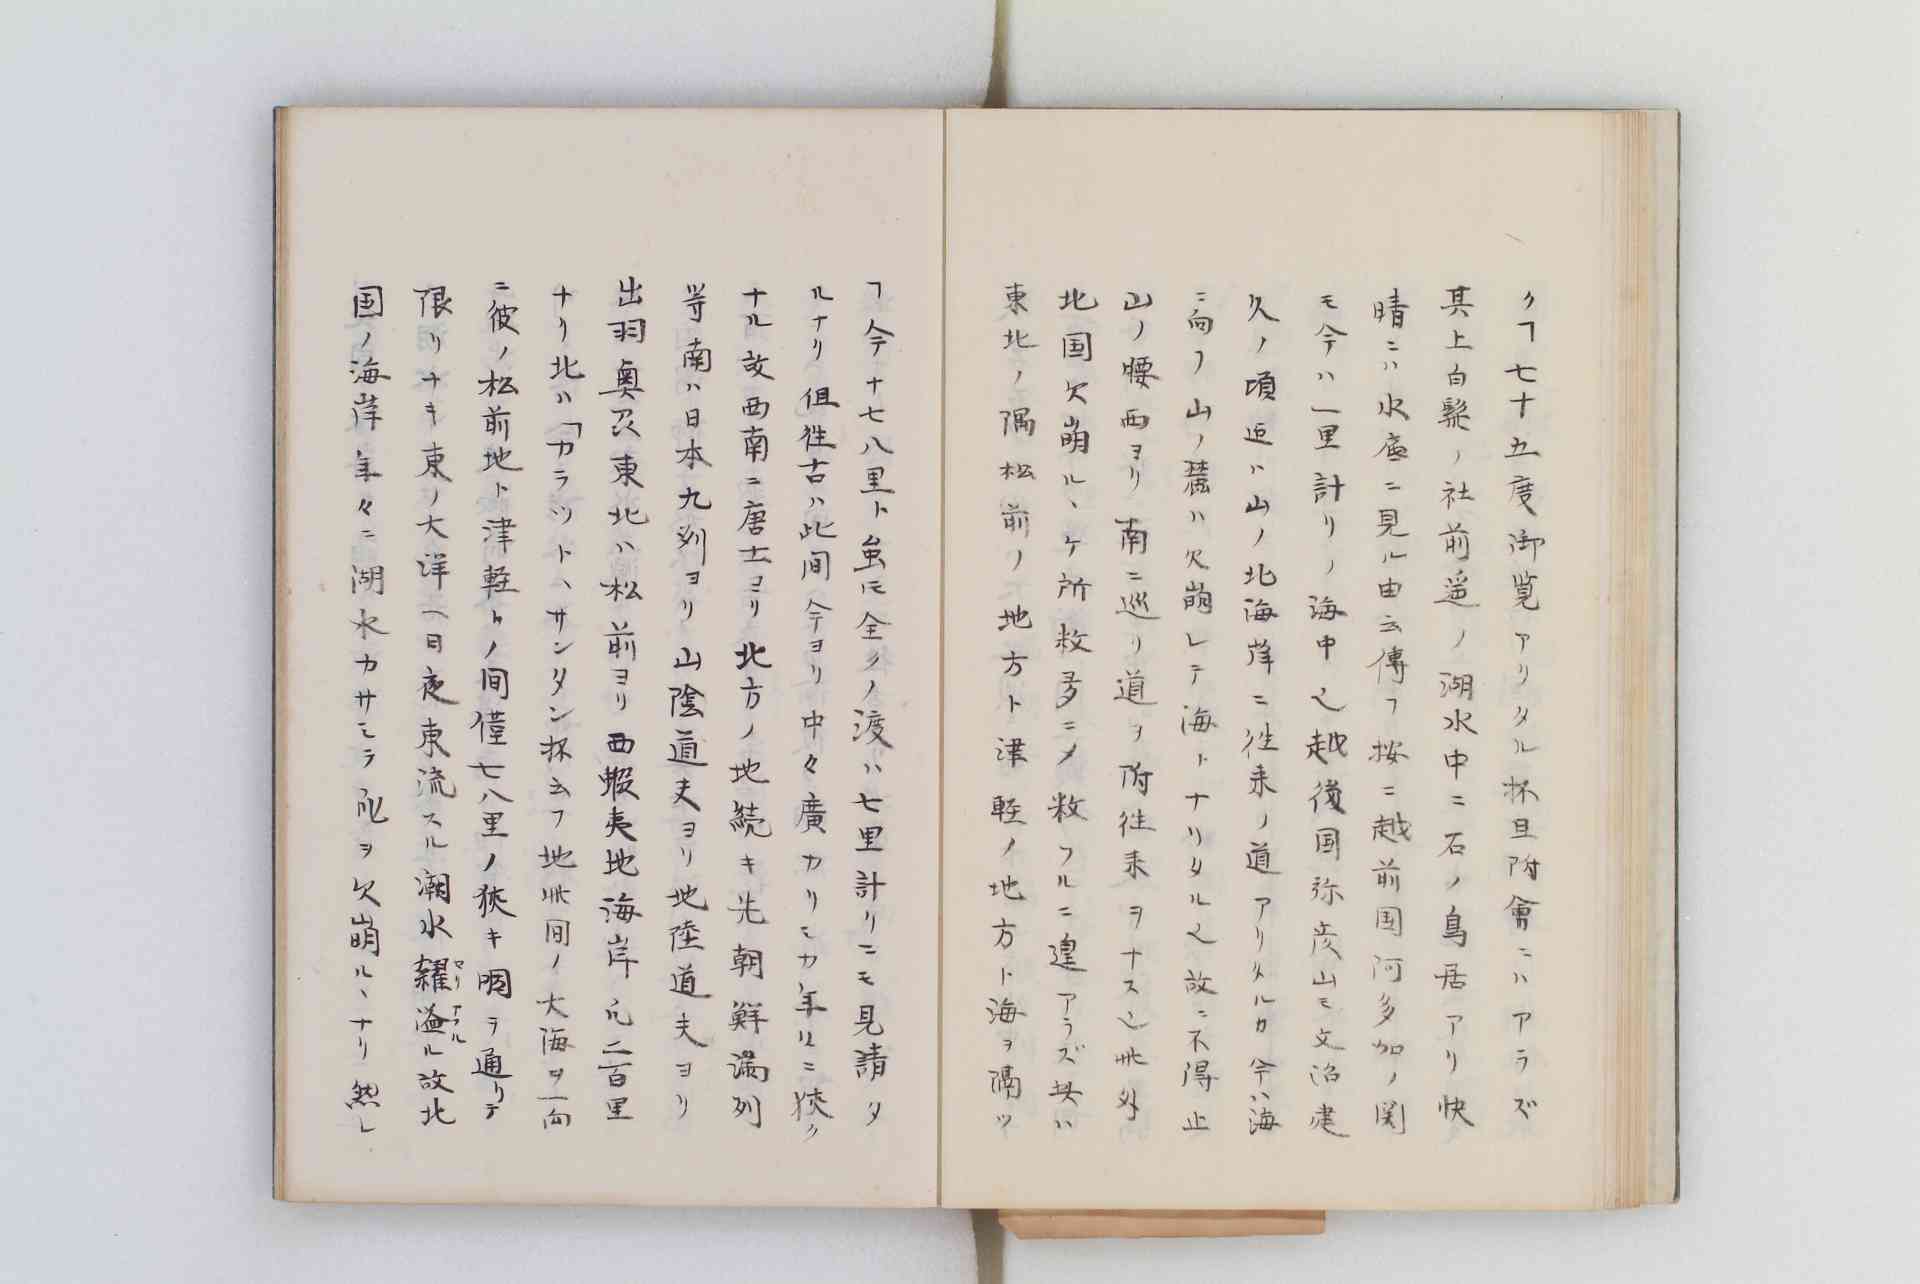 クヿ七十五度御覧アリタル抔旦附會ニハアラズ
其上白鬚ノ社前遥ノ湖水中ニ石ノ鳥居アリ快
晴ニハ水底ニ見ル由云傳フ按ニ越前国河多加ノ関
モ今ハ一里計リノ海中也越後国弥彦山モ文治建
久ノ頃迠ハ山ノ北海岸ニ徃来ノ道アリタルカ今ハ海
ニ向フ山ノ麓ハ欠崩レテ海トナリタル也故ニ不得止
山ノ腰西ヨリ南ニ巡リ道ヲ附徃来ヲナス也此外
北国欠崩ルヽケ所数多ニメ数フルニ遑アラズ其ハ
東北ノ隅松前ノ地方ト津軽ノ地方ト海ヲ隔ツ
ヿ今十七八里ト虽𪜈全クノ渡リハ七里計リニモ見請タ
ルナリ但徃古ハ此间今ヨリ中々廣カリシカ年々ニ狹ク
ナル故西南ニ唐土ヨリ北方ノ地続キ先朝鮮満列
等南ハ日本九列ヨリ山陰道夫ヨリ地陸道夫ヨリ
出羽奥及東北ハ松前ヨリ西蝦夷地海岸凡二百里
ナリ北ハ「カラツトヽサンタン抔云フ地此间ノ大海ヲ一向
ニ彼ノ松前地ト津軽トノ间僅七八里ノ狹キ胴ヲ通リテ
限リナキ東ノ大洋ヘ日夜東流スル潮水糶溢ル故北
セリ アフル
国ノ海岸年々ニ湖水カサミテ地ヲ欠崩ルヽナリ然レ